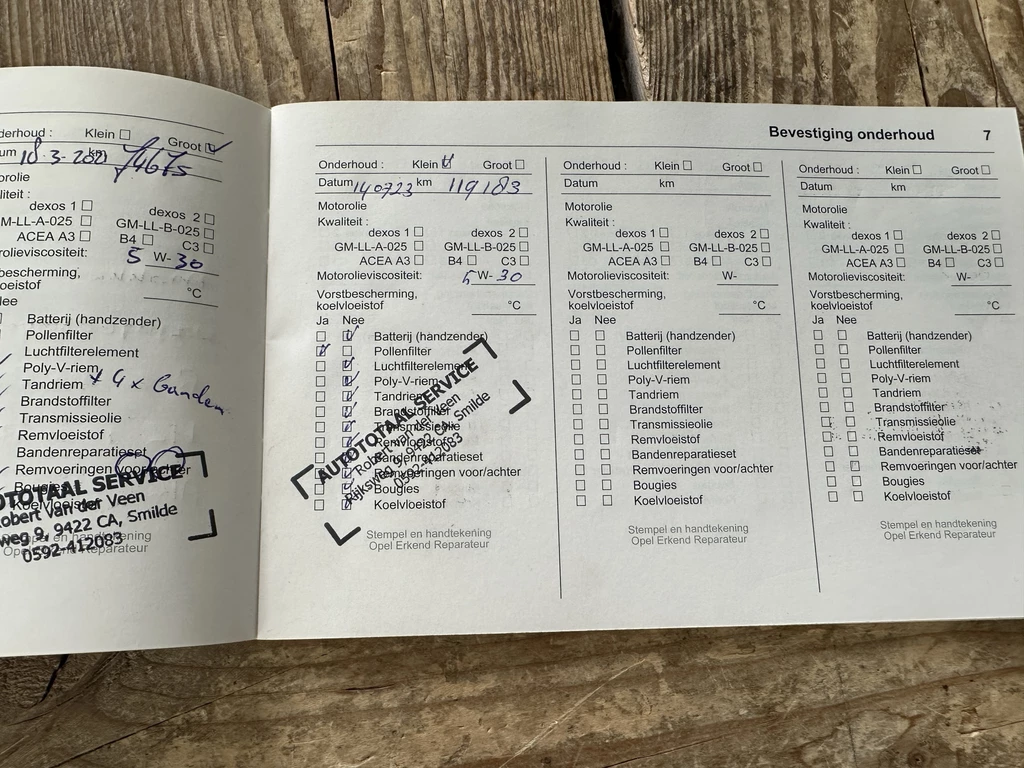 derhoud : Klein Groot
um 18-3-2021 km
orolie
liteit :
dexos 1 dexos 2
M-LL-A-025 GM-LL-B-025
ACEA A3 B4 C3
rolieviscositeit: 5 W- 30
bescherming,
loeistof °C
lee
Batterij (handzender)
Pollenfilter
Luchtfilterelement
Poly-V-riem
Tandriem + 4 x banden
Brandstoffilter
Transmissieolie
Remvloeistof
Bandenreparatieset
Remvoeringen voor/achter
Bougies
Koelvloeistof
Stempel en handtekening
Opel Erkend Reparateur
OTOTAAL SERVICE
obert van der Veen
weg 9, 9422 CA, Smilde
0592-412083
Bevestiging onderhoud 7
Onderhoud : Klein Groot
Datum 140723 km 119183
Motorolie
Kwaliteit :
dexos 1 dexos 2
GM-LL-A-025 GM-LL-B-025
ACEA A3 B4 C3
Motorolieviscositeit: 5 W- 30
Vorstbescherming,
koelvloeistof °C
Ja Nee
Batterij (handzender)
Pollenfilter
Luchtfilterelement
Poly-V-riem
Tandriem
Brandstoffilter
Transmissieolie
Remvloeistof
Bandenreparatieset
Remvoeringen voor/achter
Bougies
Koelvloeistof
AUTOTOTAAL SERVICE
Robert van der Veen
Rijksweg 9, 9422 CA, Smilde
0592-412083
Stempel en handtekening
Opel Erkend Reparateur
Onderhoud : Klein Groot
Datum km
Motorolie
Kwaliteit :
dexos 1 dexos 2
GM-LL-A-025 GM-LL-B-025
ACEA A3 B4 C3
Motorolieviscositeit: W-
Vorstbescherming,
koelvloeistof °C
Ja Nee
Batterij (handzender)
Pollenfilter
Luchtfilterelement
Poly-V-riem
Tandriem
Brandstoffilter
Transmissieolie
Remvloeistof
Bandenreparatieset
Remvoeringen voor/achter
Bougies
Koelvloeistof
Stempel en handtekening
Opel Erkend Reparateur
Onderhoud : Klein Groot
Datum km
Motorolie
Kwaliteit :
dexos 1 dexos 2
GM-LL-A-025 GM-LL-B-025
ACEA A3 B4 C3
Motorolieviscositeit: W-
Vorstbescherming,
koelvloeistof °C
Ja Nee
Batterij (handzender)
Pollenfilter
Luchtfilterelement
Poly-V-riem
Tandriem
Brandstoffilter
Transmissieolie
Remvloeistof
Bandenreparatieset
Remvoeringen voor/achter
Bougies
Koelvloeistof
Stempel en handtekening
Opel Erkend Reparateur